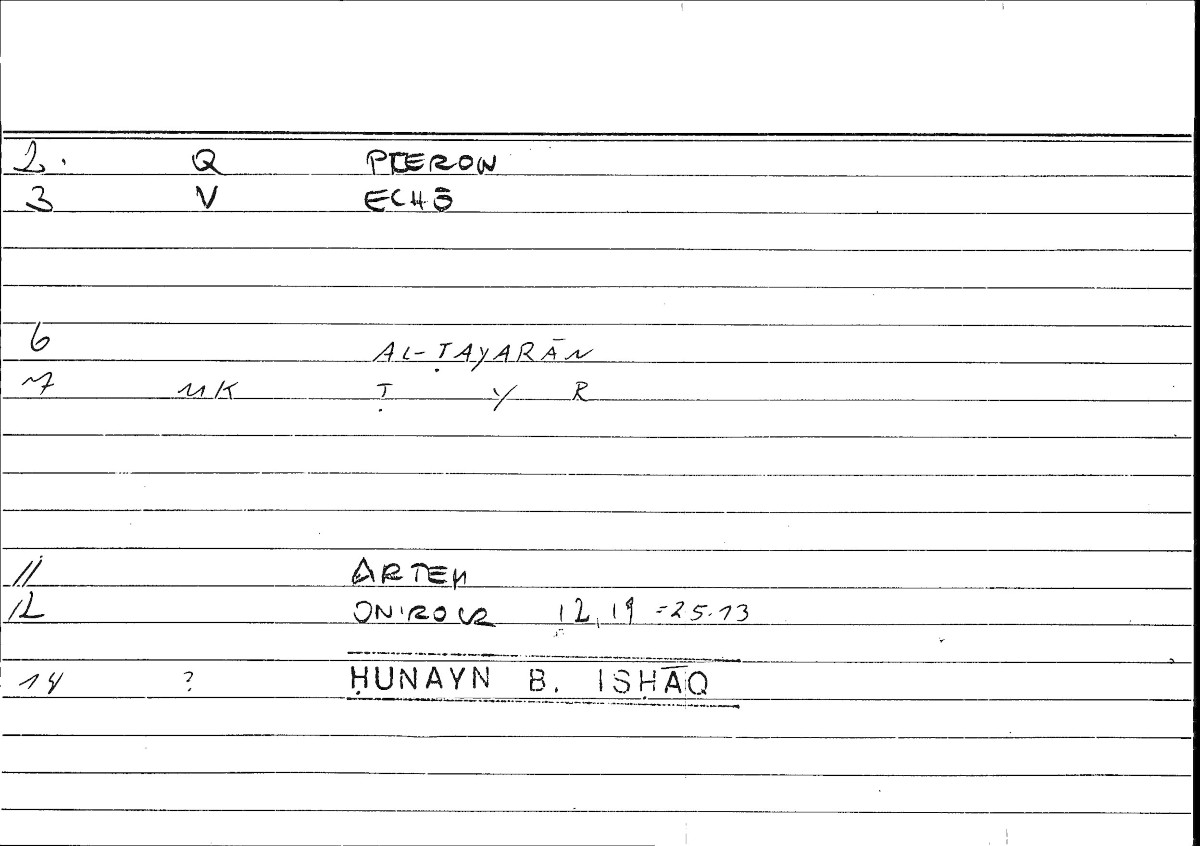 2. Q PTERON
3 V ECHŌ
6 AL-ṬAYARĀN
7 MK Ṭ Y R
11 ARTEM
12 ONIROCR 12,19 =25.13
14 ? ḤUNAYN B. ISḤĀQ